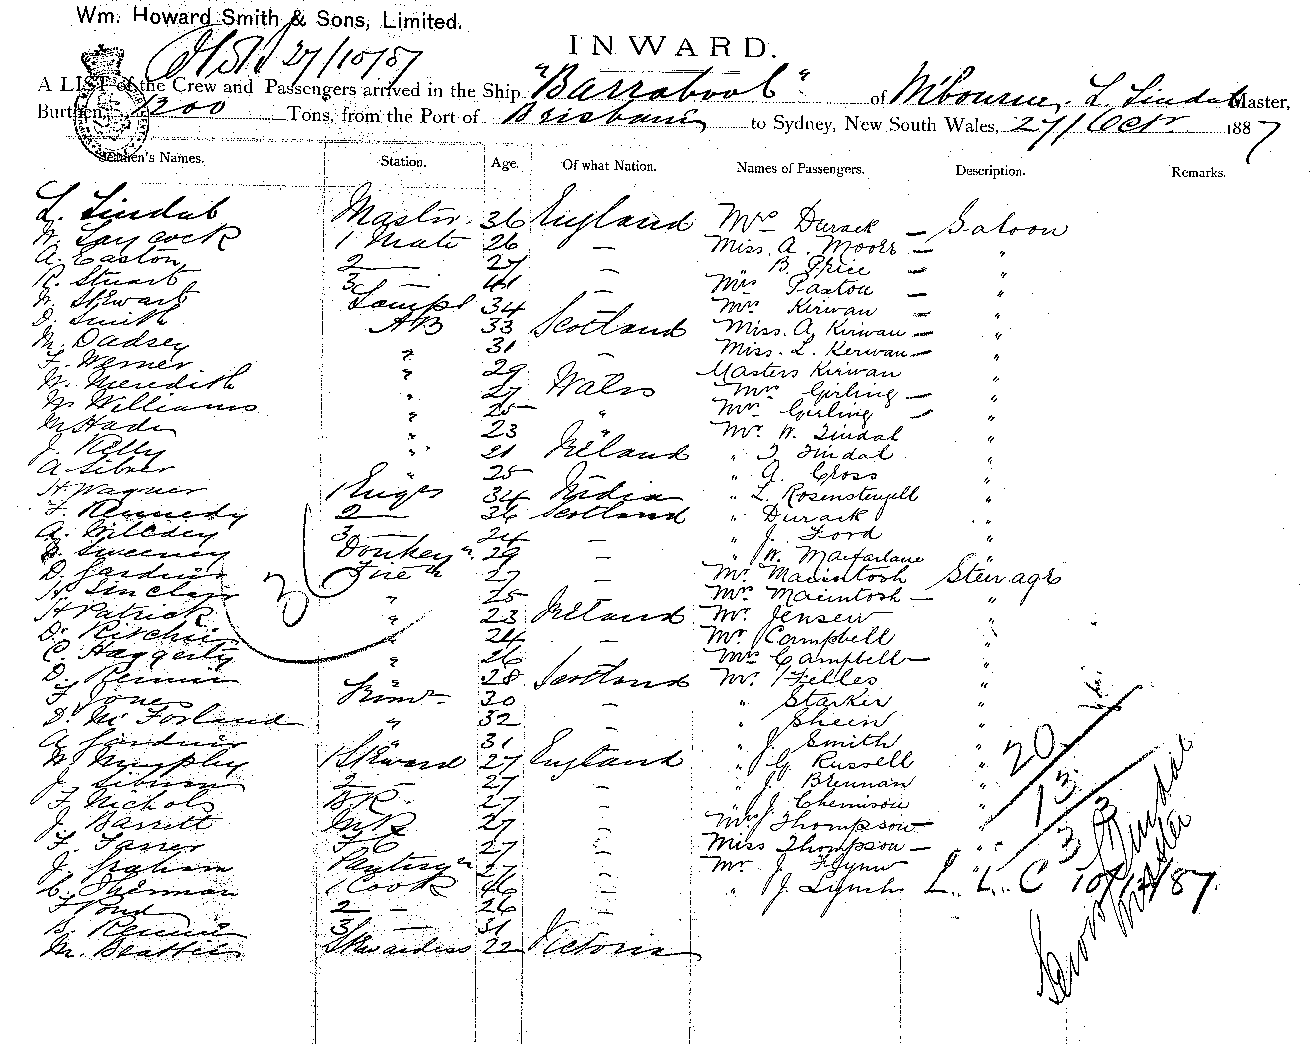 Wm. Howard Smith & Sons, Limited.
27/10/87
INWARD.
A LIST of the Crew and Passengers arrived in the Ship "Barrabool" of M'bourne, L. Lindal Master,
Burthen, 1200 Tons, from the Port of Brisbane to Sydney, New South Wales, 27/ Octr 1887
Seamen's Names. Station. Age. Of what Nation. Names of Passengers. Description. Remarks.
L. Lindal Master 36 England Mrs Durack – Saloon
W. Laycock 1 Mate 26 – Miss A. Moore – "
A. Easton 2 – 27 – B. Price – "
R. Stuart 3 – 41 – Mrs Paxton – "
W. Stewart Lamps 34 Mrs Kirwan – "
D. Smith AB 33 Scotland Miss. A. Kirwan – "
M. Dadsey " 31 – Miss. L. Kerwan – "
F. Werner " 29 Masters Kirwan "
W. Meredith " 27 Wales Mrs Girling – "
W. Williams " 25 " Mr Girling – "
M Hade " 23 Mr. W. Lindal "
J. Kelly " 21 Ireland " T. Lindal "
A. Silver " 25 " A. Gross "
H. Wagner 1 Engr 34 India " L. Rosenstengell "
F. Kennedy 2 – 36 Scotland " Durack "
A. 3 – 24 " J. Ford "
B. Sweeney Donkeyn 29 – " W. Macfarlane "
D. Gardiner Firem 27 – Mr. Macintosh Steerage
H. Sinclair " 25 Mrs. Macintosh – "
H Patrick " 23 Ireland Mr. Jensen "
D. Ritchie 24 – Mr Campbell "
C. Haggerty " 26 Mrs Campbell – "
D. Rennie " 28 Scotland Mr. Helles "
F. Jones Trimr 30 " Starker "
D. Mc Forland " 32 " Shein "
A. Gardiner 31 " J. Smith "
W. Murphy 1 Steward 27 England " G. Russell "
J. 2 – 27 – " J. Brennan "
F. Nichols BR. 27 – " J. Chemison "
J. Barrett MR 27 – Mrs Thompson – "
F. Farrer FC 27 – Miss Thompson – "
J. Graham Pantryn 27 – Mr J. Flynn "
C. Sherman 1 Cook 46 – " J. Lynch
F Pond 2 – 26 –
B. Rennie 3 – 31 –
M. Beattie Stewardess 22 Victoria
36
20
13
33
L. L. C 10/12/87.
Lindal
Master